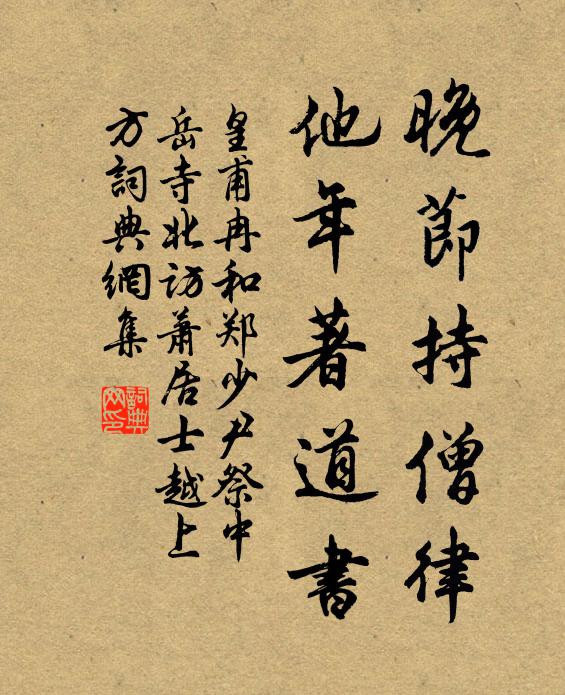 晚節持僧律
他年著道書
皇甫冉和郑少尹祭中
岳寺北訪蕭居士越上
方詞典網集
詞典網印